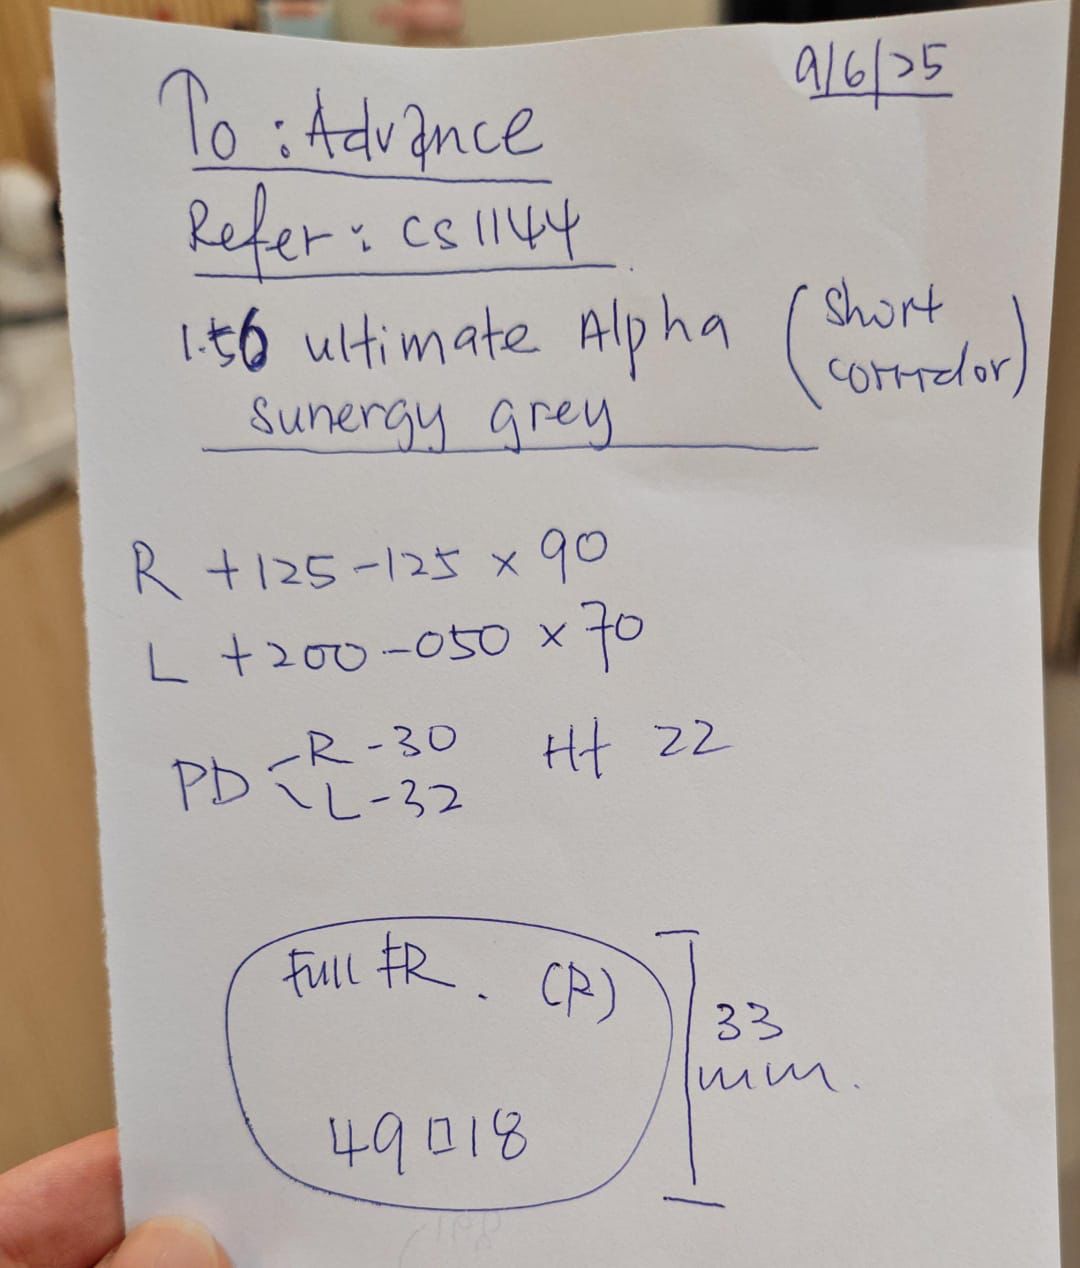 9/6/25
To : Advance
Refer : CS1144
1.56 ultimate Alpha (short corridor)
sunergy grey
R +125 -125 x 90
L +200 -050 x 70
PD R - 30 Ht 22
L - 32
Full FR. (R)
33
mm.
49□18